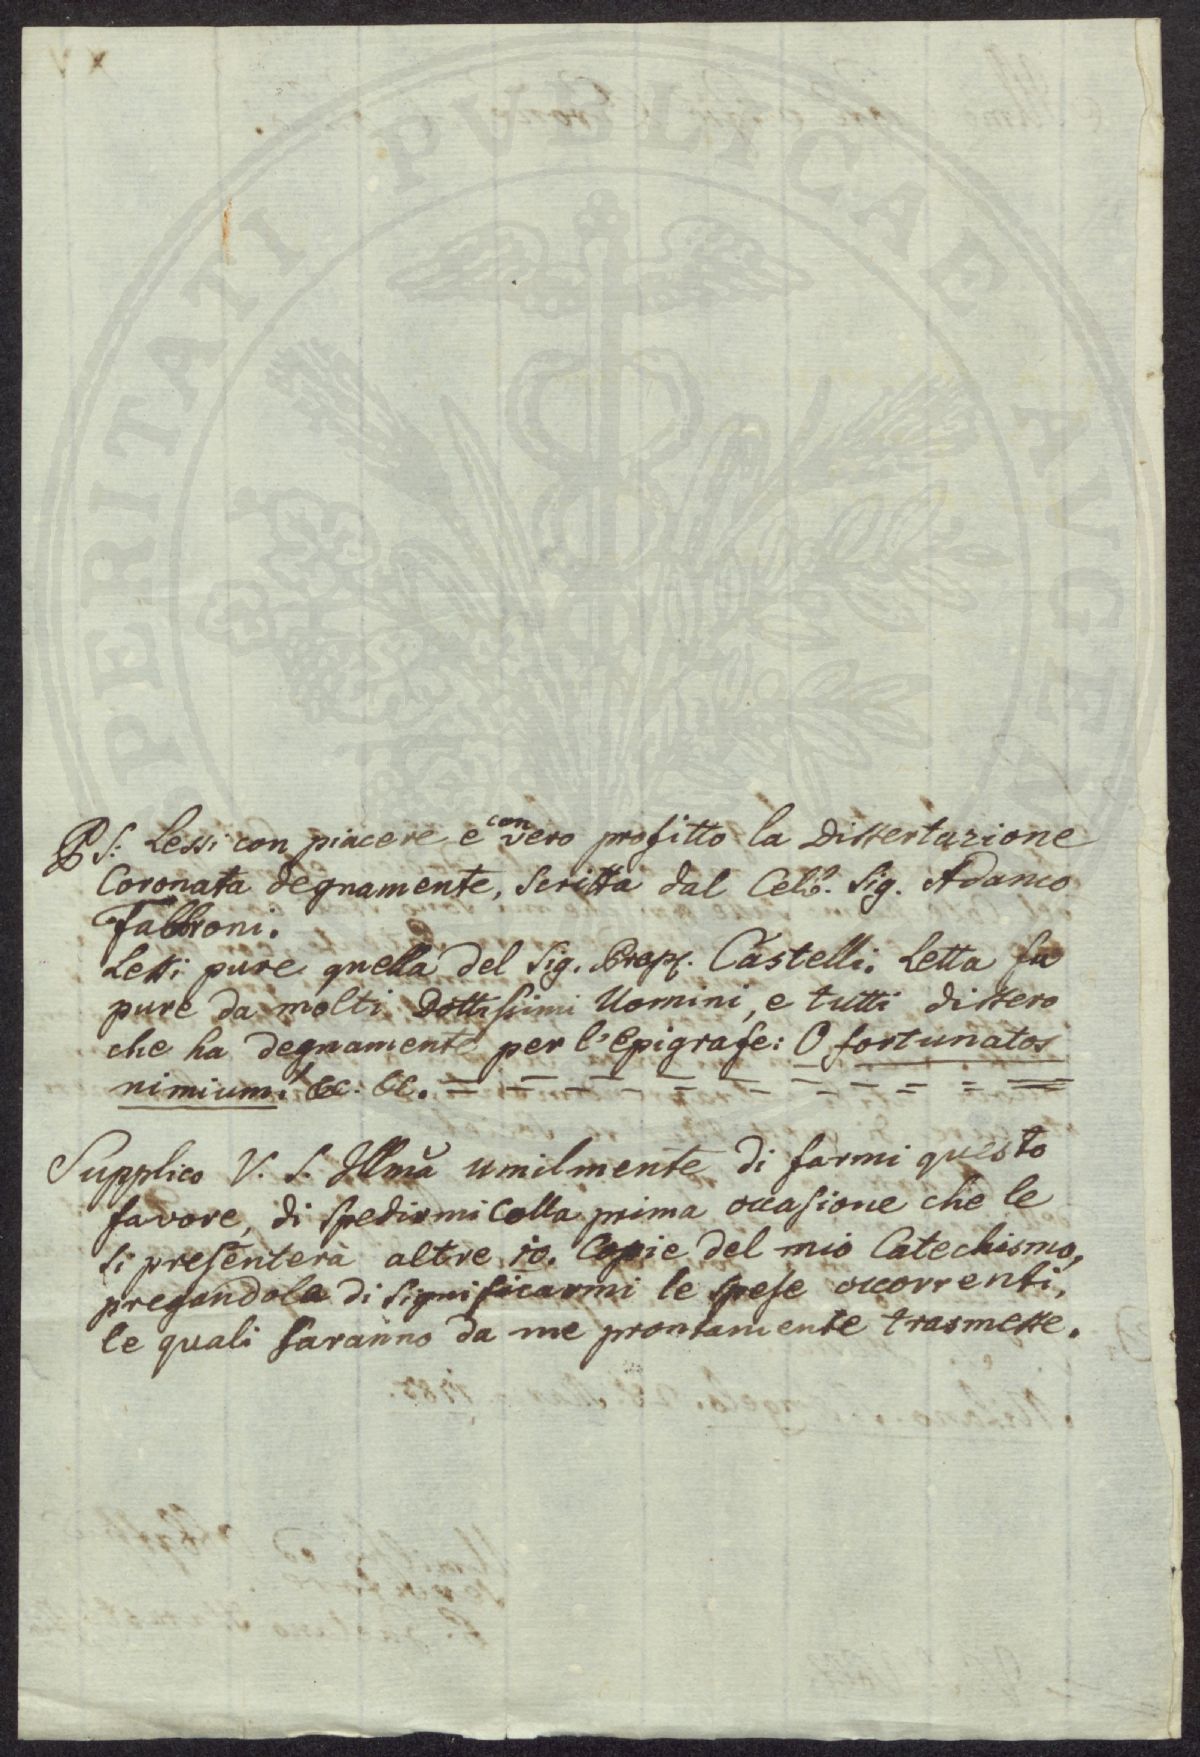 PROSPERITATI PUBLICAE AUGENDAE
PS: Lessi con piacere e con vero profitto la Dissertazione
Coronata degnamente, scritta dal Celb.º Sig. Adamo
Fabbroni.
Lessi pure quella del Sig. Prop. Castelli. Letta fu
pure da molti Dottissimi Uomini, e tutti dissero
che ha degnamente per l'Epigrafe: O fortunatos
nimium! &c. &c. = = = = = = = = = = =
Supplico V. S. Illmã umilmente di farmi questo
favore, di spedirmi colla prima occasione che le
si presenterà altre 10. Copie del mio Catechismo,
pregandola di significarmi le spese occorrenti,
le quali saranno da me prontamente trasmesse.